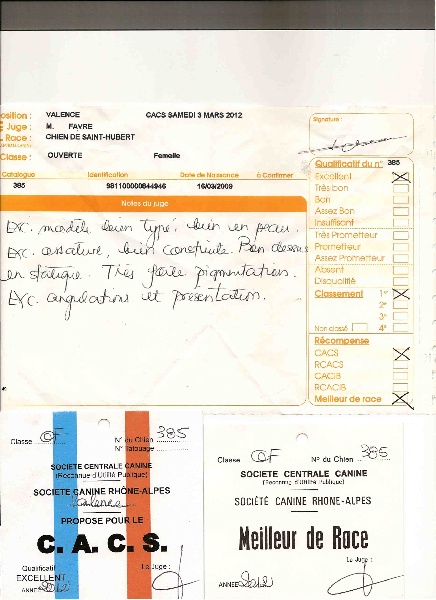 osition : VALENCE CACS SAMEDI 3 MARS 2012
Juge : M. FAVRE
Race : CHIEN DE SAINT-HUBERT
Classe : OUVERTE Femelle
Signature :
Catalogue Identification Date de Naissance à Confirmer
385 981100000844946 16/03/2009
Notes du juge
Exc. modèle bien typé, bien en peau.
Exc. ossature, bien construite. Bon dessus
en statique. Très foncée pigmentation.
Exc. angulations et présentation.
Qualificatif du n° 385
Excellent
Très bon
Bon
Assez Bon
Insuffisant
Très Prometteur
Prometteur
Assez Prometteur
Absent
Disqualifié
Classement 1er
2e
3e
Non classé 4e
Récompense
CACS
RCACS
CACIB
RCACIB
Meilleur de race
Classe OF N° du Chien 385
N° Tatouage
SOCIETE CENTRALE CANINE
(Reconnue d'Utilité Publique)
SOCIETE CANINE RHÔNE-ALPES
Valence
PROPOSE POUR LE
C. A. C. S.
Qualificatif Le Juge :
EXCELLENT
ANNÉE 2012
Classe OF N° du Chien 385
SOCIETE CENTRALE CANINE
(Reconnue d'Utilité Publique)
SOCIÉTÉ CANINE RHONE-ALPES
Meilleur de Race
Le Juge :
ANNÉE 2012